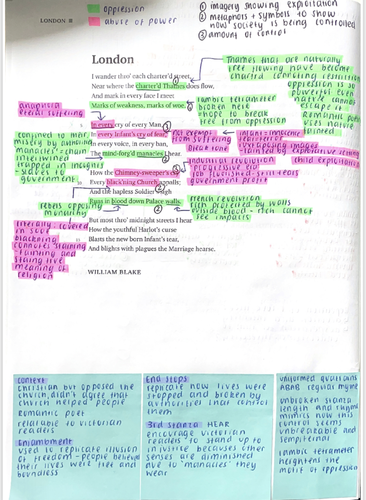 LONDON
oppression
abuse of power
① imagery showing exploitation
② metaphors + symbols to show
how society is being controlled
③ amount of control
London
I wander thro' each charter'd street,
Near where the charter'd Thames does flow,
And mark in every face I meet
Marks of weakness, marks of woe.
In every cry of every Man,
In every Infant's cry of fear,
In every voice, in every ban,
The mind-forg'd manacles I hear.
How the Chimney-sweeper's cry
Every black'ning Church appalls;
And the hapless Soldier's sigh
Runs in blood down Palace walls.
But most thro' midnight streets I hear
How the youthful Harlot's curse
Blasts the new born Infant's tear,
And blights with plagues the Marriage hearse.
WILLIAM BLAKE
Thames that are naturally
free flowing have become
charted connoting restriction
oppression is so
powerful even
nature cannot
escape it
Romantic poet
uses nature
iambic tetrameter
broken here
hope to break
free from oppression
anaphora
confined to mental
misery by authority
manacle - chain
intertwined
trapped in
slaves to
government
not exempt
from suffering
infant = innocence
juxtaposing images
child exploitation
industrial revolution
progressive era
job flourished still tears
government profit
rebels opposing
monarchy
french revolution
rich protected by walls
rich cannot
see impacts
literally covered
in soot
blackening
connotes staining
ruining and
staining the
meaning of
religion
context
christian but opposed the
church, didn't agree that
church helped people
romantic poet
relatable to victorian
readers
Enjambment
used to replicate illusion
of freedom - people believe
their lives were free and
boundless
End stops
replicate how lives were
stopped and broken by
authorities that control
them
3rd stanza: HEAR
encourage victorian
readers to stand up to
injustice because other
senses are diminished
due to 'manacles' they
wear
uniformed quatrains
ABAB regular rhyme
unbroken stanza
length and rhyme
mimics how this
control seems
unbreakable and
sempiternal
iambic tetrameter
heightens the
motif of oppression